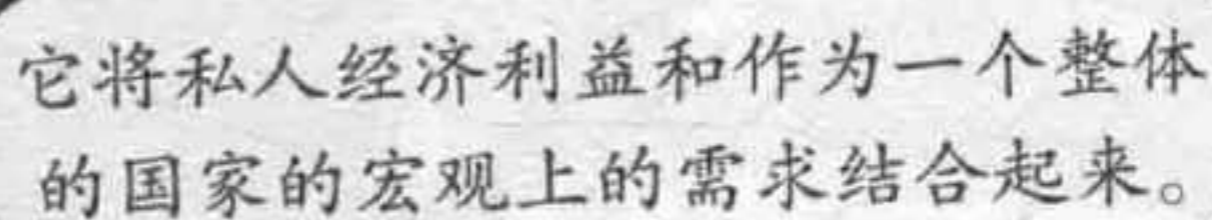 它将私人经济利益和作为一个整体
的国家的宏观上的需求结合起来。